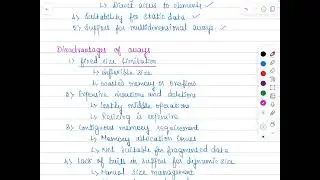 ↳ Direct access to elements
4) Suitability for static data ✓
5) Support for multidimensional arrays ✓
Disadvantages of arrays
1) Fixed size limitation
↳ Inflexible size
↳ wasted memory or overflow
2) Expensive insertions and deletions
↳ Costly middle operations
↳ Resizing is expensive
3) Contiguous memory requirement
↳ Memory allocation issues
↳ Not suitable for fragmented data
4) Lack of built in support for dynamic size
↳ Manual size management